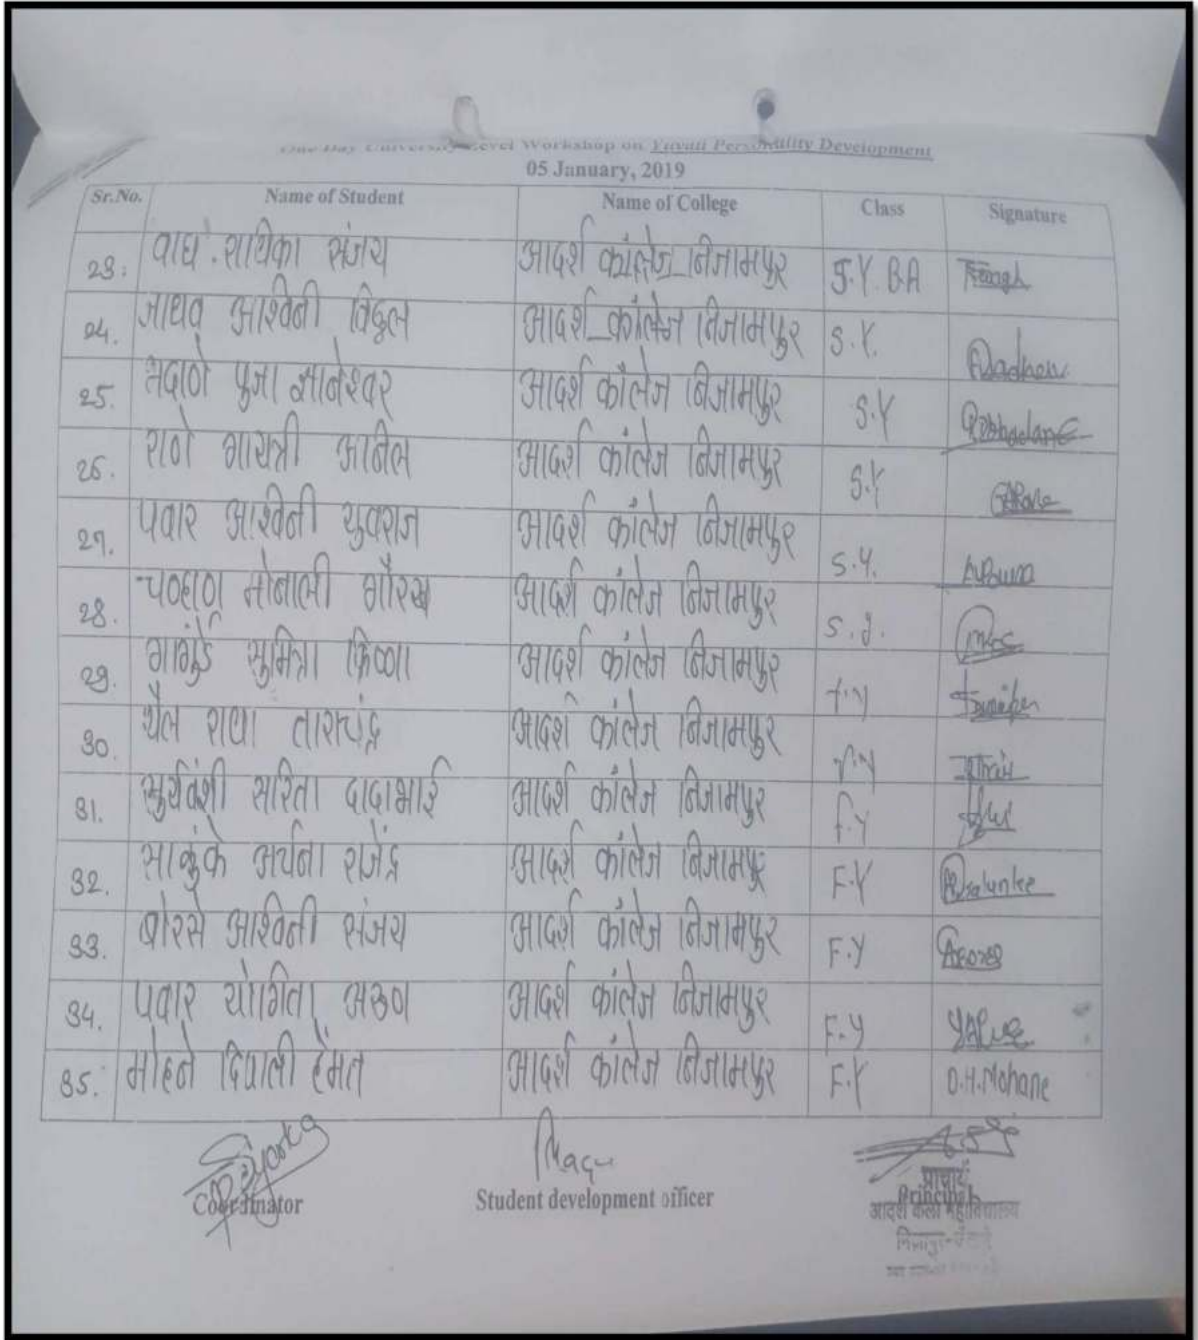 One Day University Level Workshop on Yuvati Personality Development
05 January, 2019
Sr.No. Name of Student Name of College Class Signature
23. वाघ. राधिका संजय आदर्श कॉलेज निजामपुर S.Y. BA
24. जाधव आश्विनी विठ्ठल आदर्श कॉलेज निजामपुर S.Y. Jadhav
25. भदाणे पुजा ज्ञानेश्वर आदर्श कॉलेज निजामपुर S.Y Bhadane
26. राणे गायत्री अनिल आदर्श कॉलेज निजामपुर S.Y
27. पवार आश्विनी युवराज आदर्श कॉलेज निजामपुर S.Y.
28. चव्हाण मोनाली गोरख आदर्श कॉलेज निजामपुर S.y.
29. गांगुर्डे सुमित्रा क्रिष्णा आदर्श कॉलेज निजामपुर f.y
30. थैल राधा ताराचंद्र आदर्श कॉलेज निजामपुर f.y
31. सुर्यवंशी सरिता दादाभाई आदर्श कॉलेज निजामपुर f.y
32. साळुंके अर्चना राजेंद्र आदर्श कॉलेज निजामपुर F.Y Salunke
33. बोरसे आश्विनी संजय आदर्श कॉलेज निजामपुर F.Y
34. पवार योगिता अरुण आदर्श कॉलेज निजामपुर F.y
35. मोहने दिपाली हेंमत आदर्श कॉलेज निजामपुर F.Y D.H.Mohane
Coordinator Student development officer
प्राचार्य
Principal
आदर्श कला महाविद्यालय